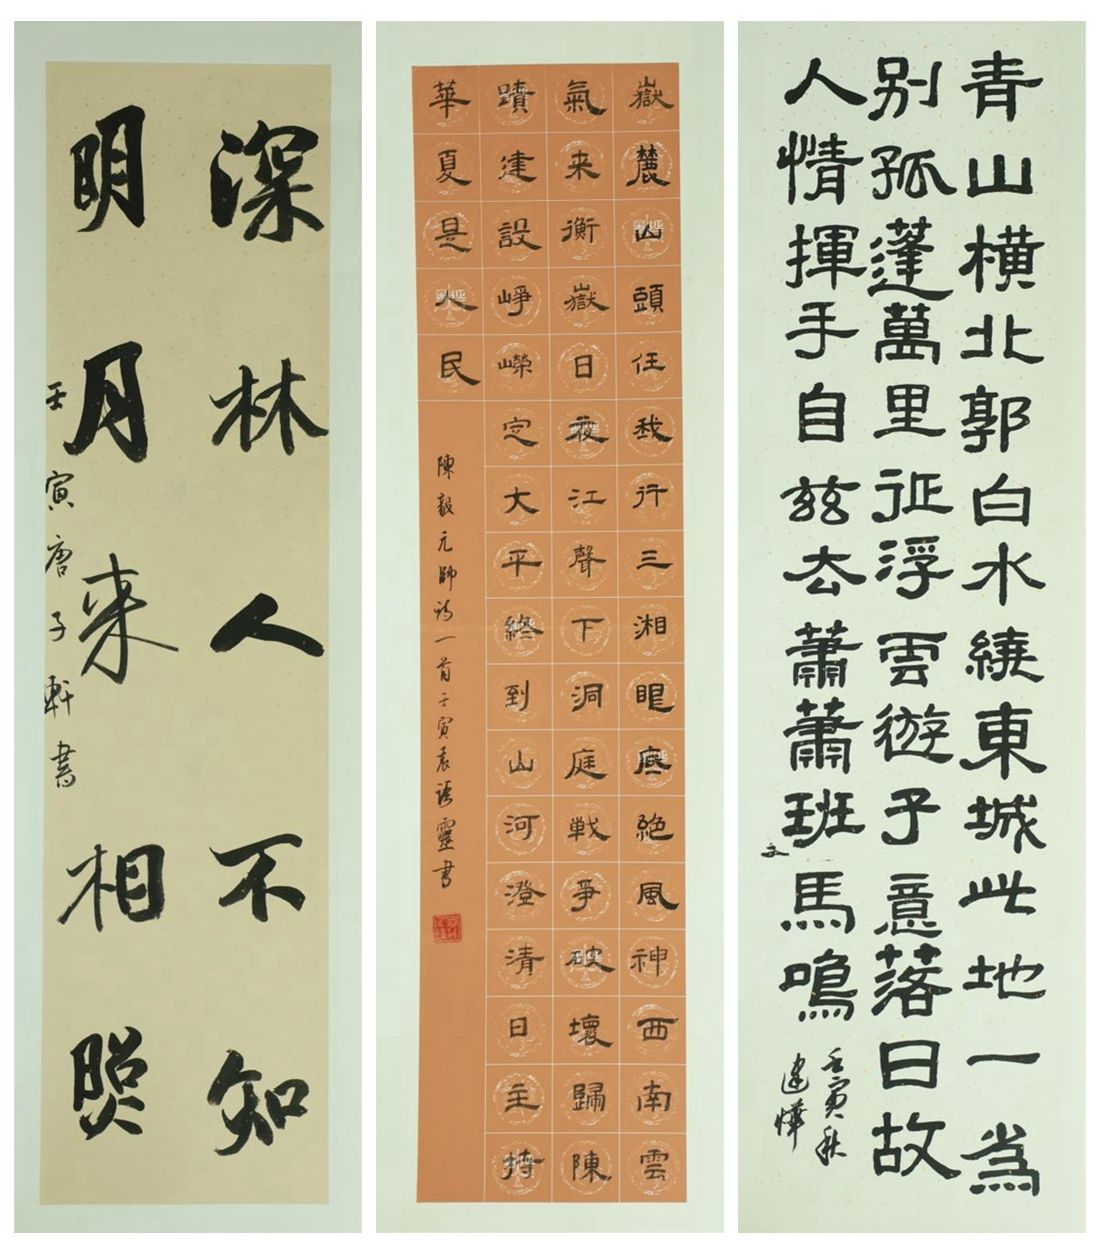 深林人不知
明月来相照
壬寅唐子軒書
嶽麓山頭任我行三湘眼底絶風神西南雲
氣来衡嶽日夜江聲下洞庭戦爭破壞歸陳
蹟建設崢嶸定大平終到山河澄清日主持
華夏是人民
陳毅元帥詩一首壬寅袁語靈書
青山横北郭白水繞東城此地一為
别孤蓬萬里征浮雲遊子意落日故
人情揮手自兹去蕭蕭班馬鳴
壬寅秋
文建燁